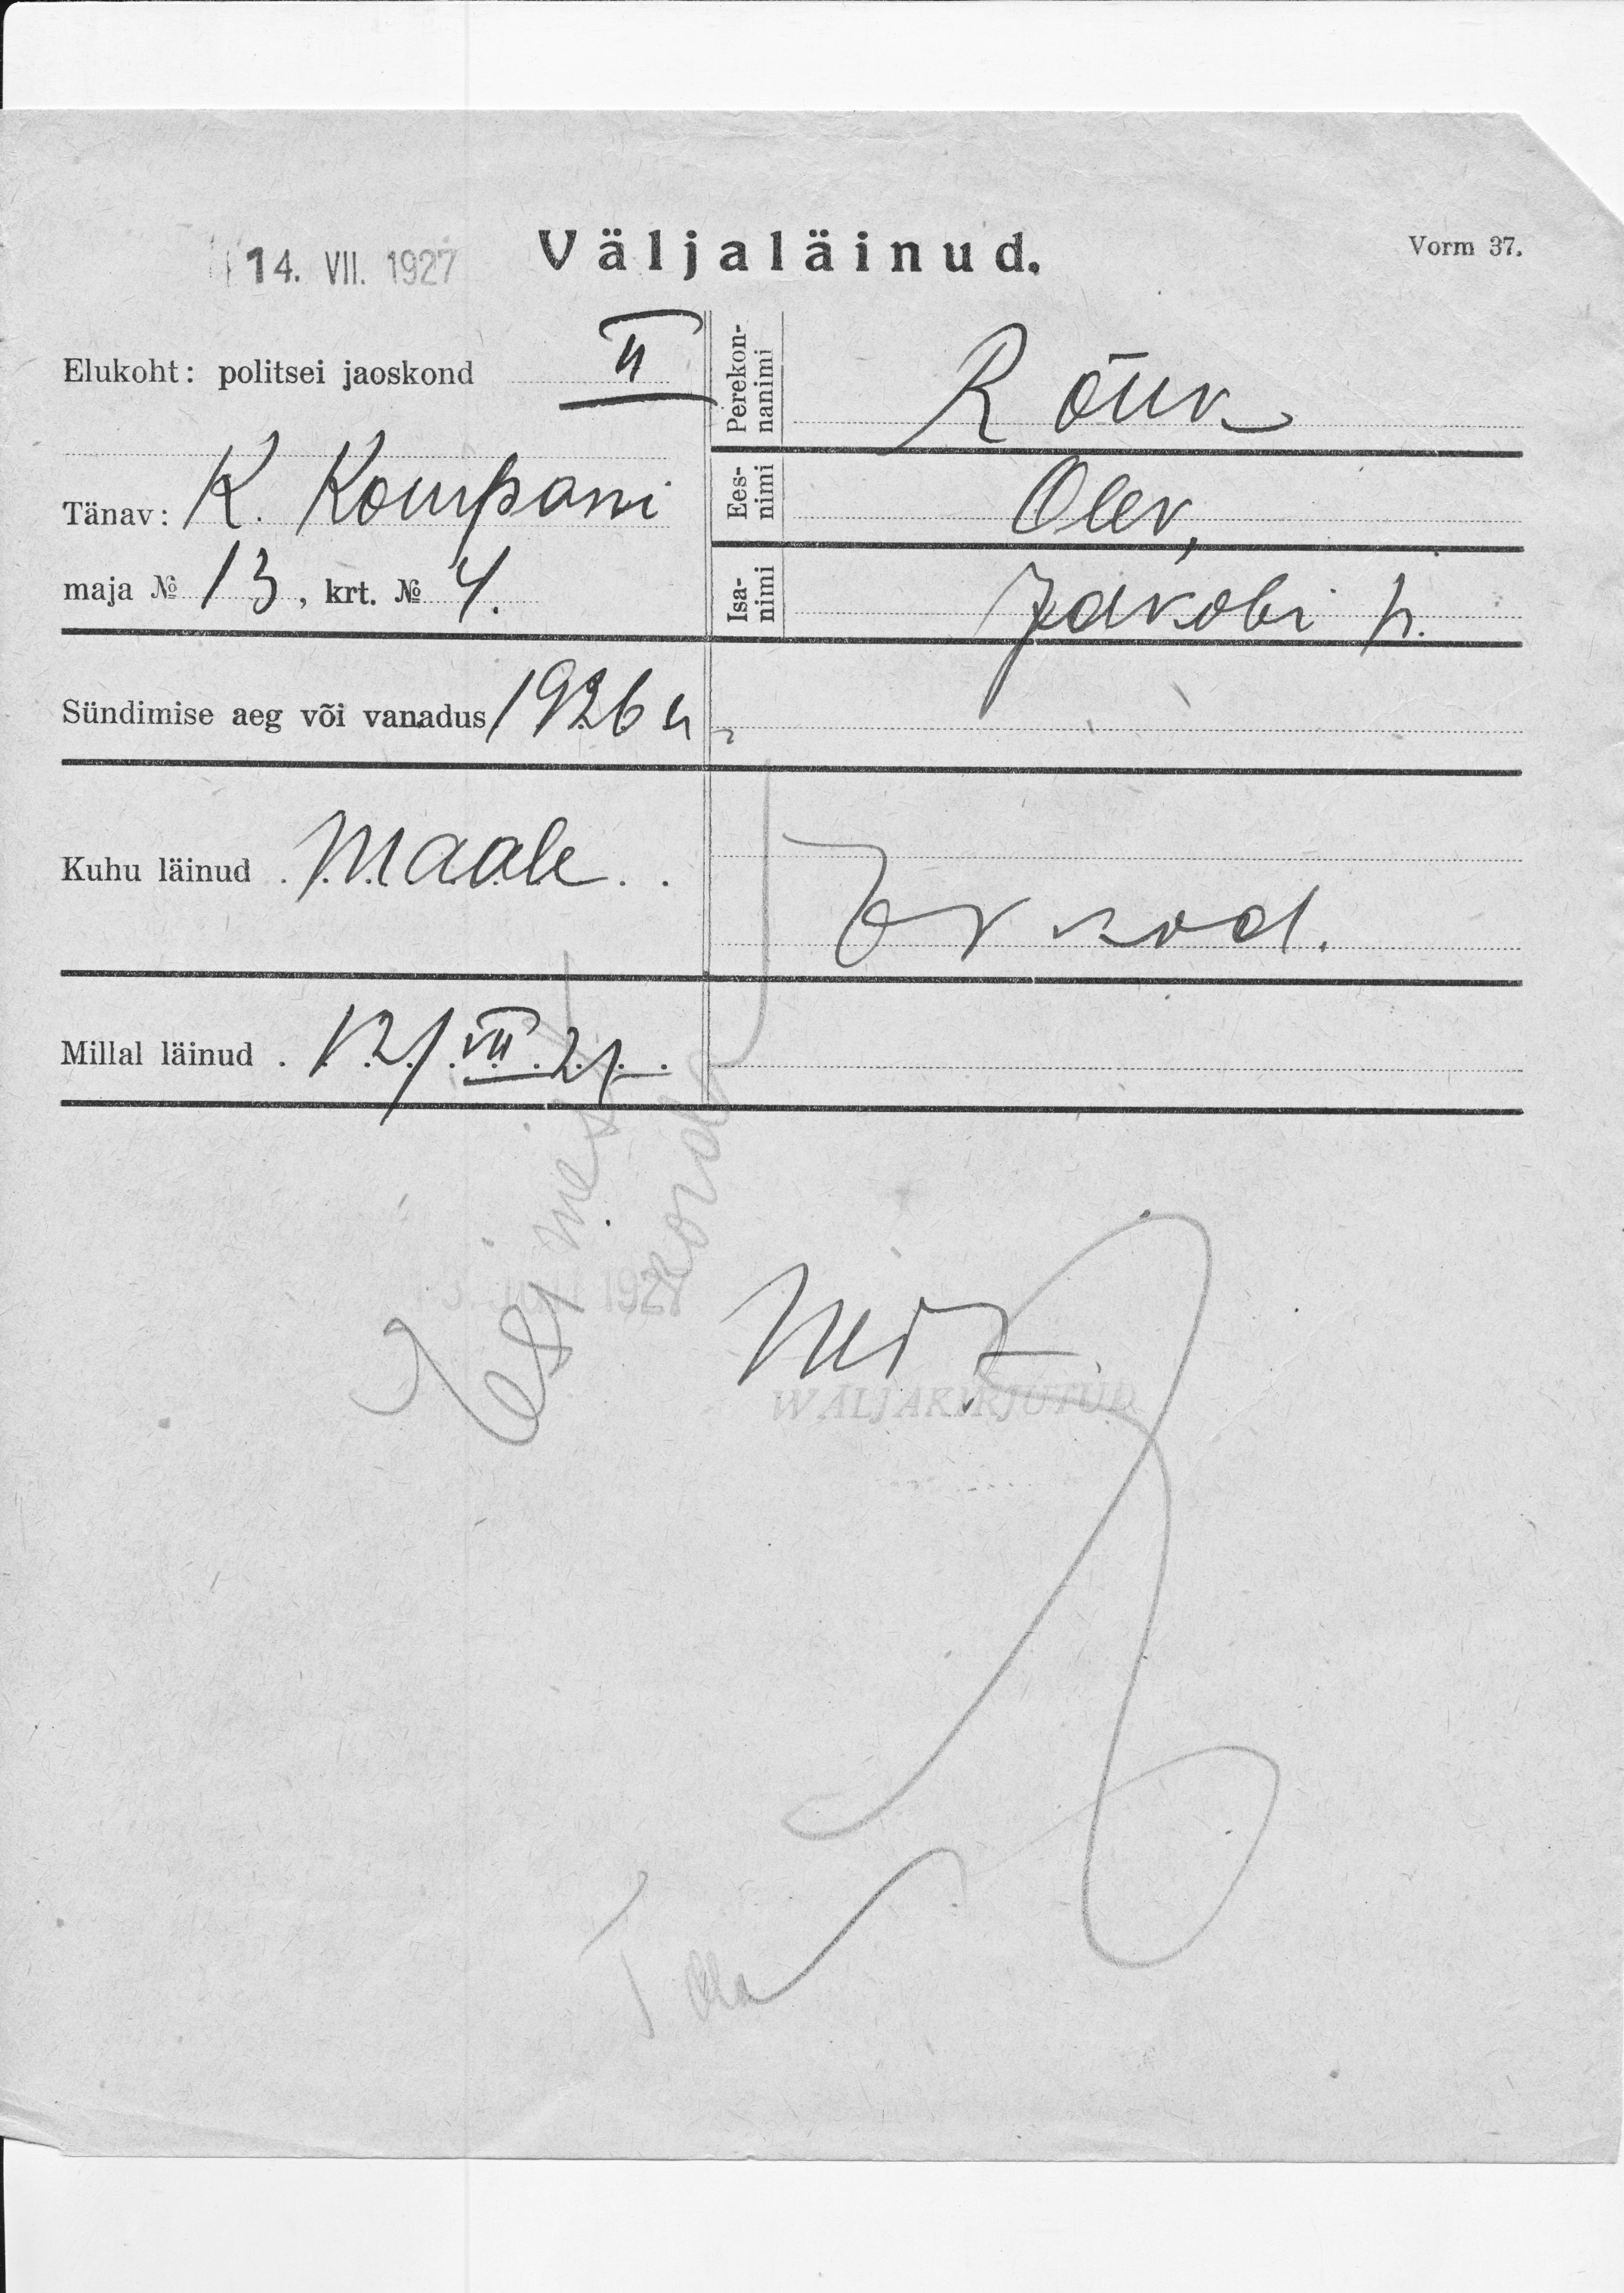 14. VII. 1927
Väljaläinud.
Vorm 37.
Elukoht: politsei jaoskond II
Tänav: K. Kompani
maja № 13, krt. № 4.
Perekonnanimi Rõuk
Eesnimi Olev,
Isanimi Jakobi p.
Sündimise aeg või vanadus 1926 a.
Kuhu läinud Maale
Ev kod.
Millal läinud 12/VII 27.
Esimest korda
1927
WÄLJAKIRJUTUD